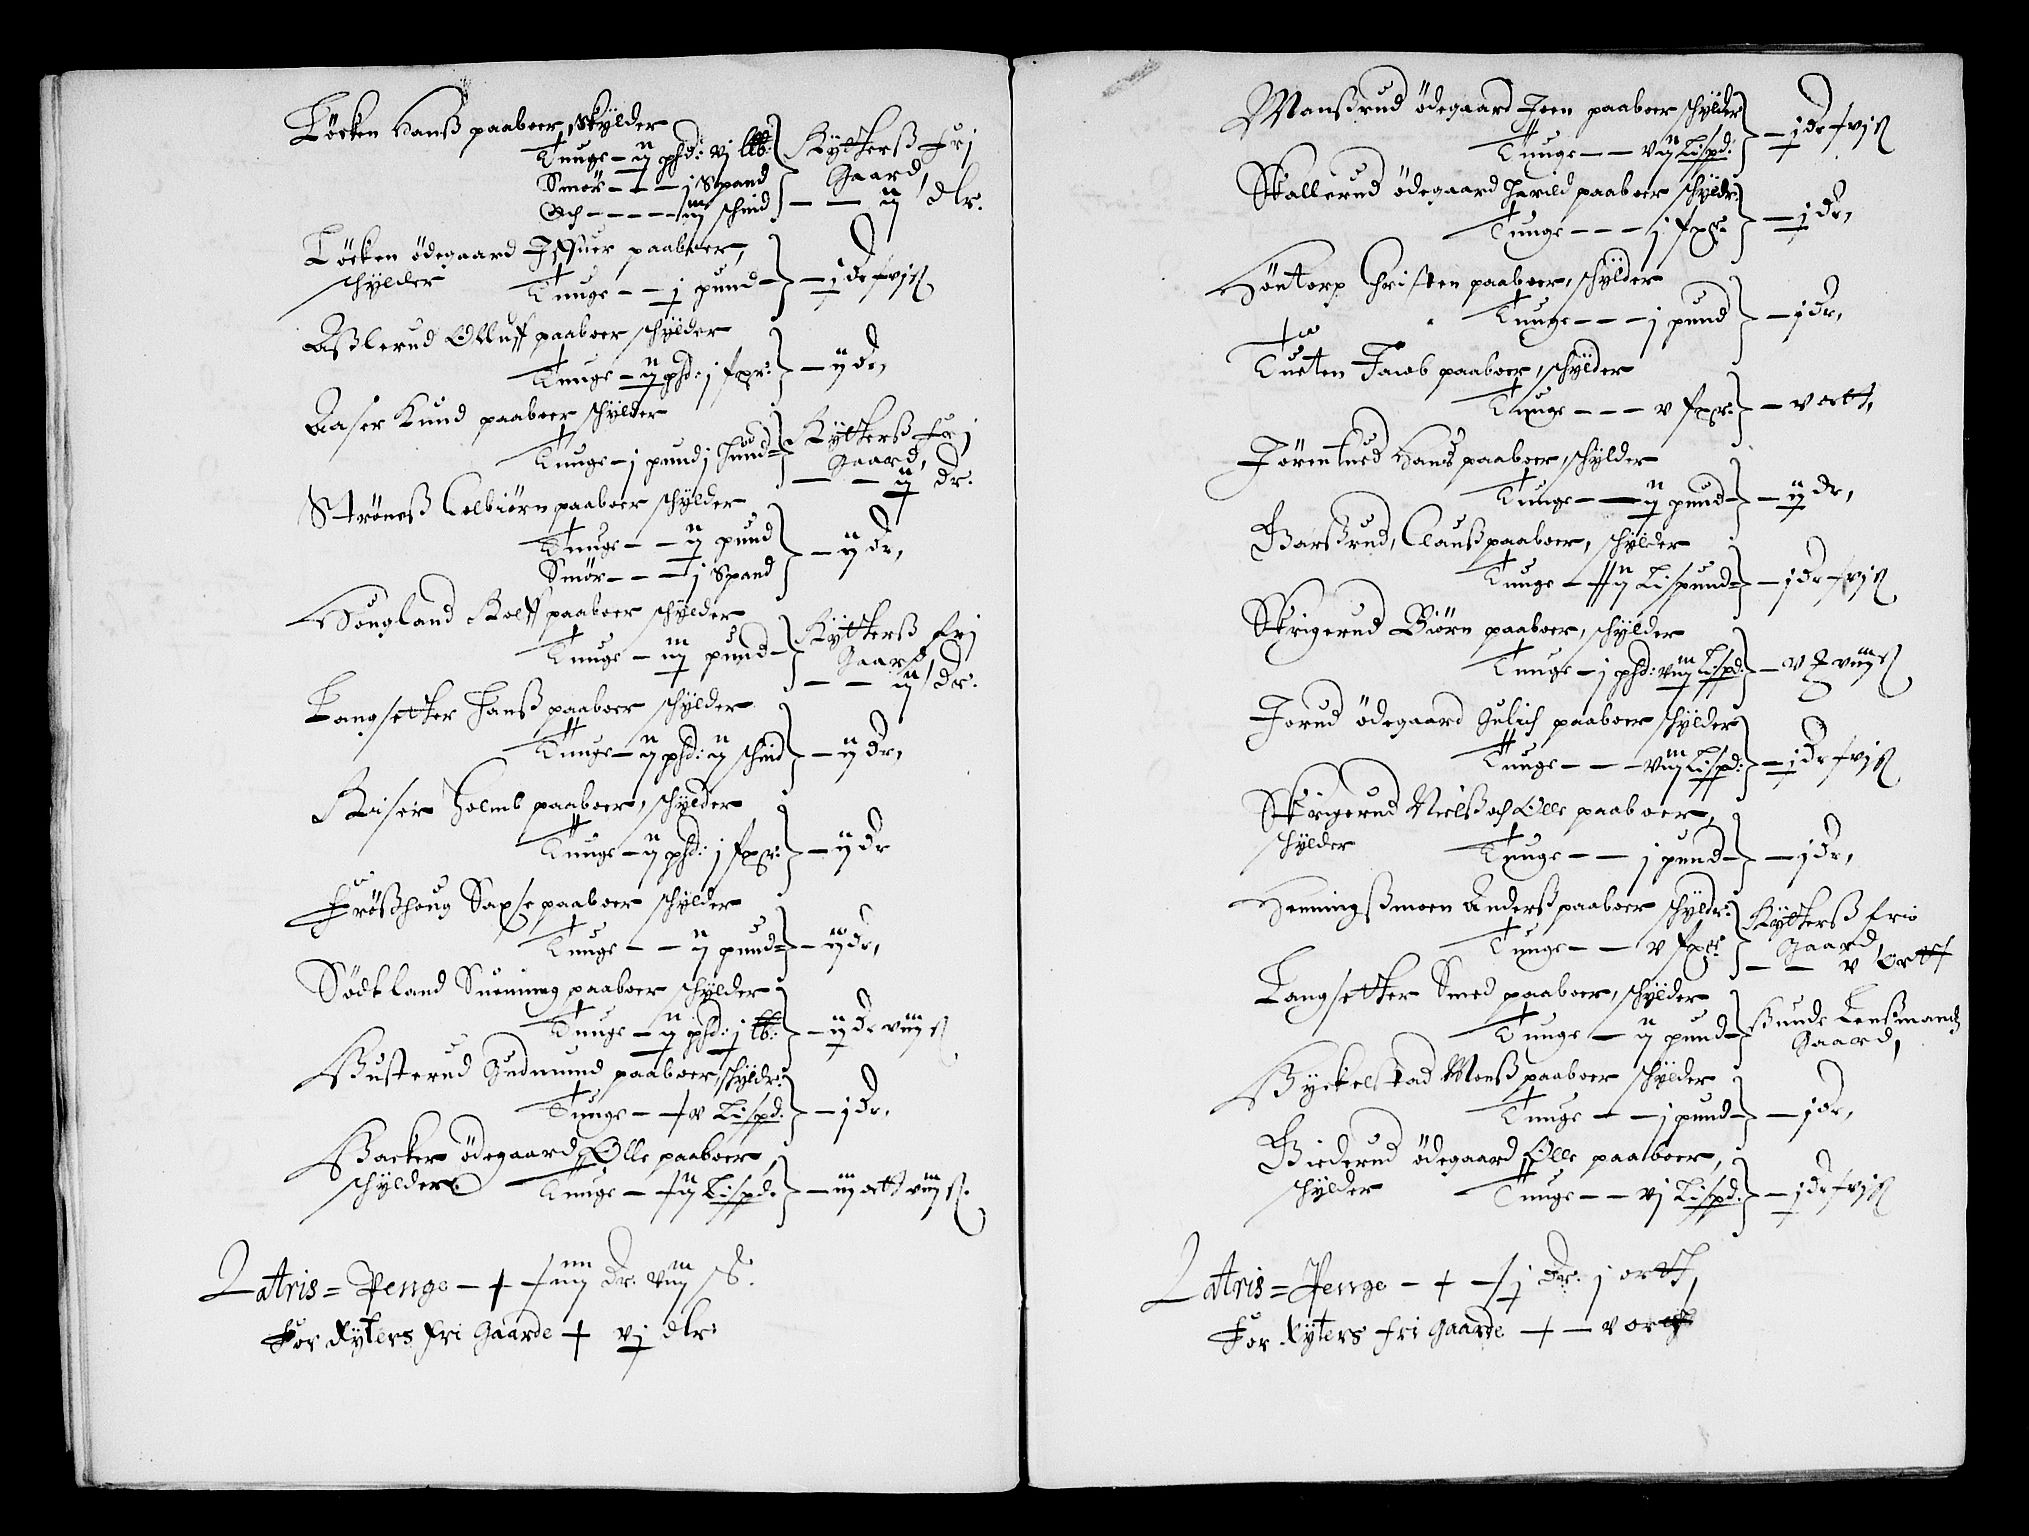 Löcken Hanß paaboer, skÿlder
Tunge – ij phd: vj ℔: Rÿtterß fri
Smör – – – j Spand Gaard,
Och – – – – iij schind – – ij dlr.
Löcken ödegaard Jffuer paaboer,
schÿlder Tunge – – j pund – – j dr
Aßlerud Olluff paaboer schÿlder
Tunge – ij phd: j fxr: – ij dr,
Aaser Knud paaboer schÿlder
Tunge – j pund j hund Rÿtterß fri
Gaard,
– – ij dr.
Ströneß Colbiörn paaboer schÿlder
Tunge – – ij pund – ij dr,
Smör – – – j Spand
Hougland Rolff paaboer schÿlder
Tunge – iij pund – Rÿtterß fri
Gaard,
– – ij dr.
Langsetter Hanß paaboer schÿlder
Tunge – ij phd: ij schind – ij dr,
Riser Holmb paaboer, schÿlder
Tunge – ij phd: j fxr: – ij dr
Frößhoug Saxse paaboer schÿlder
Tunge – – ij pund – ij dr,
Södtland Suening paaboer schÿlder
Tunge – ij phd: j ℔: – ij dr viij ß
Busterud Gudmund paaboer, schÿldr:
Tunge – – v Lispd: – j dr,
Backer ödegaard, Olle paaboer,
schÿlder Tunge – ij Lispd: – iij ortt viij ß.
Latris = Penge – + – iiij dr. viij ß.
For Rÿters fri Gaarde + vj dlr:
Manßrud ödegaard Joen paaboer schÿlder
Tunge – – vij Lispd: – j dr
Skallerud ödegaard Harild paaboer schÿldr:
Tunge – – – j fxr: – j dr,
Höntorp Christen paaboer, schÿlder
Tunge – – – j pund – j dr,
Tueten Jacob paaboer, schÿlder
Tunge – – – v fxr: – v ortt,
Hans paaboer, schÿlder
Tunge – – ij pund – ij dr,
Barßrud, Claußpaaboer, schÿlder
Tunge – ij Lispund – j dr
Skrigerud Biörn paaboer, schÿlder
Tunge – j phd: viij Lispd:
Jorud ödegaard Gulich paaboer schÿlder
Tunge – – – viij Lispd: – j dr
Skrigerud Nielß och Olle paaboer,
schÿlder Tunge – – j pund – – j dr,
Hemingßmoen Anderß paaboer schÿldr: Rÿtterß frie
Tunge – – v fxr: Gaard,
– – v Ortt
Langsetter Smed paaboer, schÿlder
Tunge – ij pund – Bunde Lenßmandtz
Gaard,
Byckelstad Monß paaboer schÿlder
Tunge – – j pund – – j dr,
Biederud ödegaard, Olle paaboer,
schÿlder Tunge – – vj Lispd: – j dr
Latris = Penge – + – j dr: j ortt,
For Rÿters fri Gaarde – + – v ortt